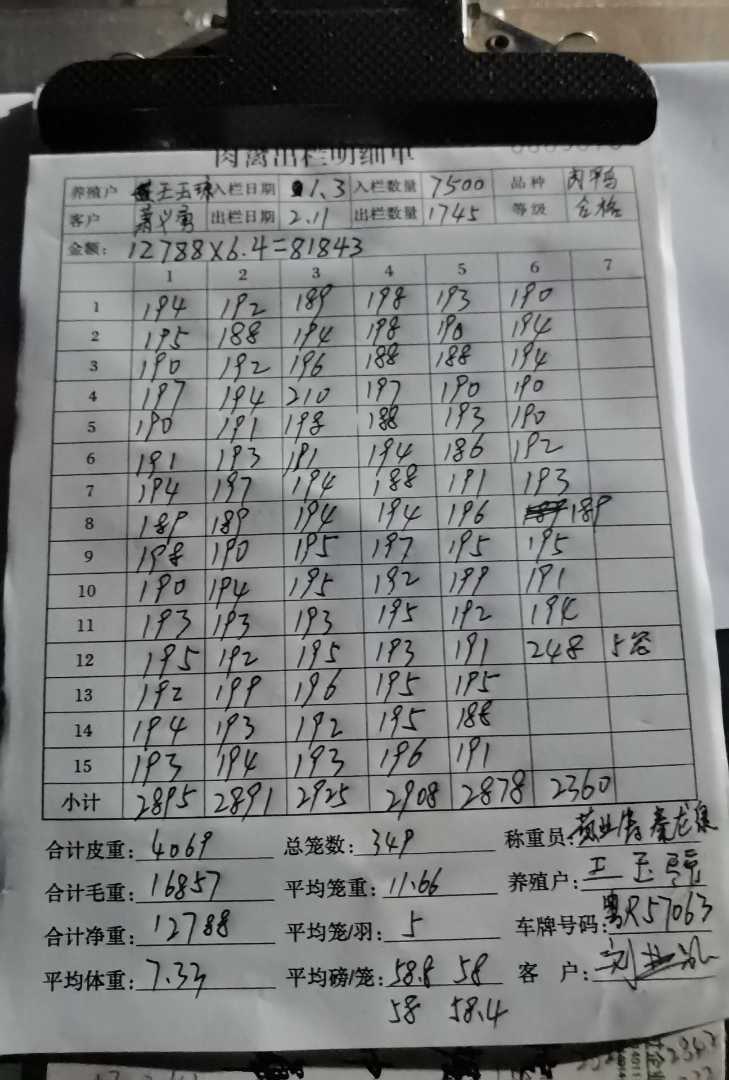 肉禽出栏明细单
养殖户 王玉琼 入栏日期 1.3 入栏数量 7500 品种 肉鸭
客户 出栏日期 2.11 出栏数量 1745 等级 合格
金额: 12788×6.4=81843
1 2 3 4 5 6 7
1 194 192 189 198 193 190
2 195 188 194 198 190 194
3 190 192 196 188 188 194
4 197 194 210 197 190 190
5 190 191 198 188 193 190
6 191 193 191 194 186 192
7 194 197 194 188 191 193
8 189 189 194 194 196 189
9 198 190 195 197 195 195
10 190 194 195 192 199 191
11 193 193 193 195 192 194
12 195 192 195 193 191 248 5谷
13 192 199 196 195 195
14 194 193 192 195 188
15 193 194 193 196 191
小计 2895 2891 2925 2908 2878 2360
合计皮重: 4069 总笼数: 349 称重员:
合计毛重: 16857 平均笼重: 11.66 养殖户: 王玉琼
合计净重: 12788 平均笼/羽: 5 车牌号码: 粤R57063
平均体重: 7.33 平均磅/笼: 58.8 58 客 户:
58 58.4